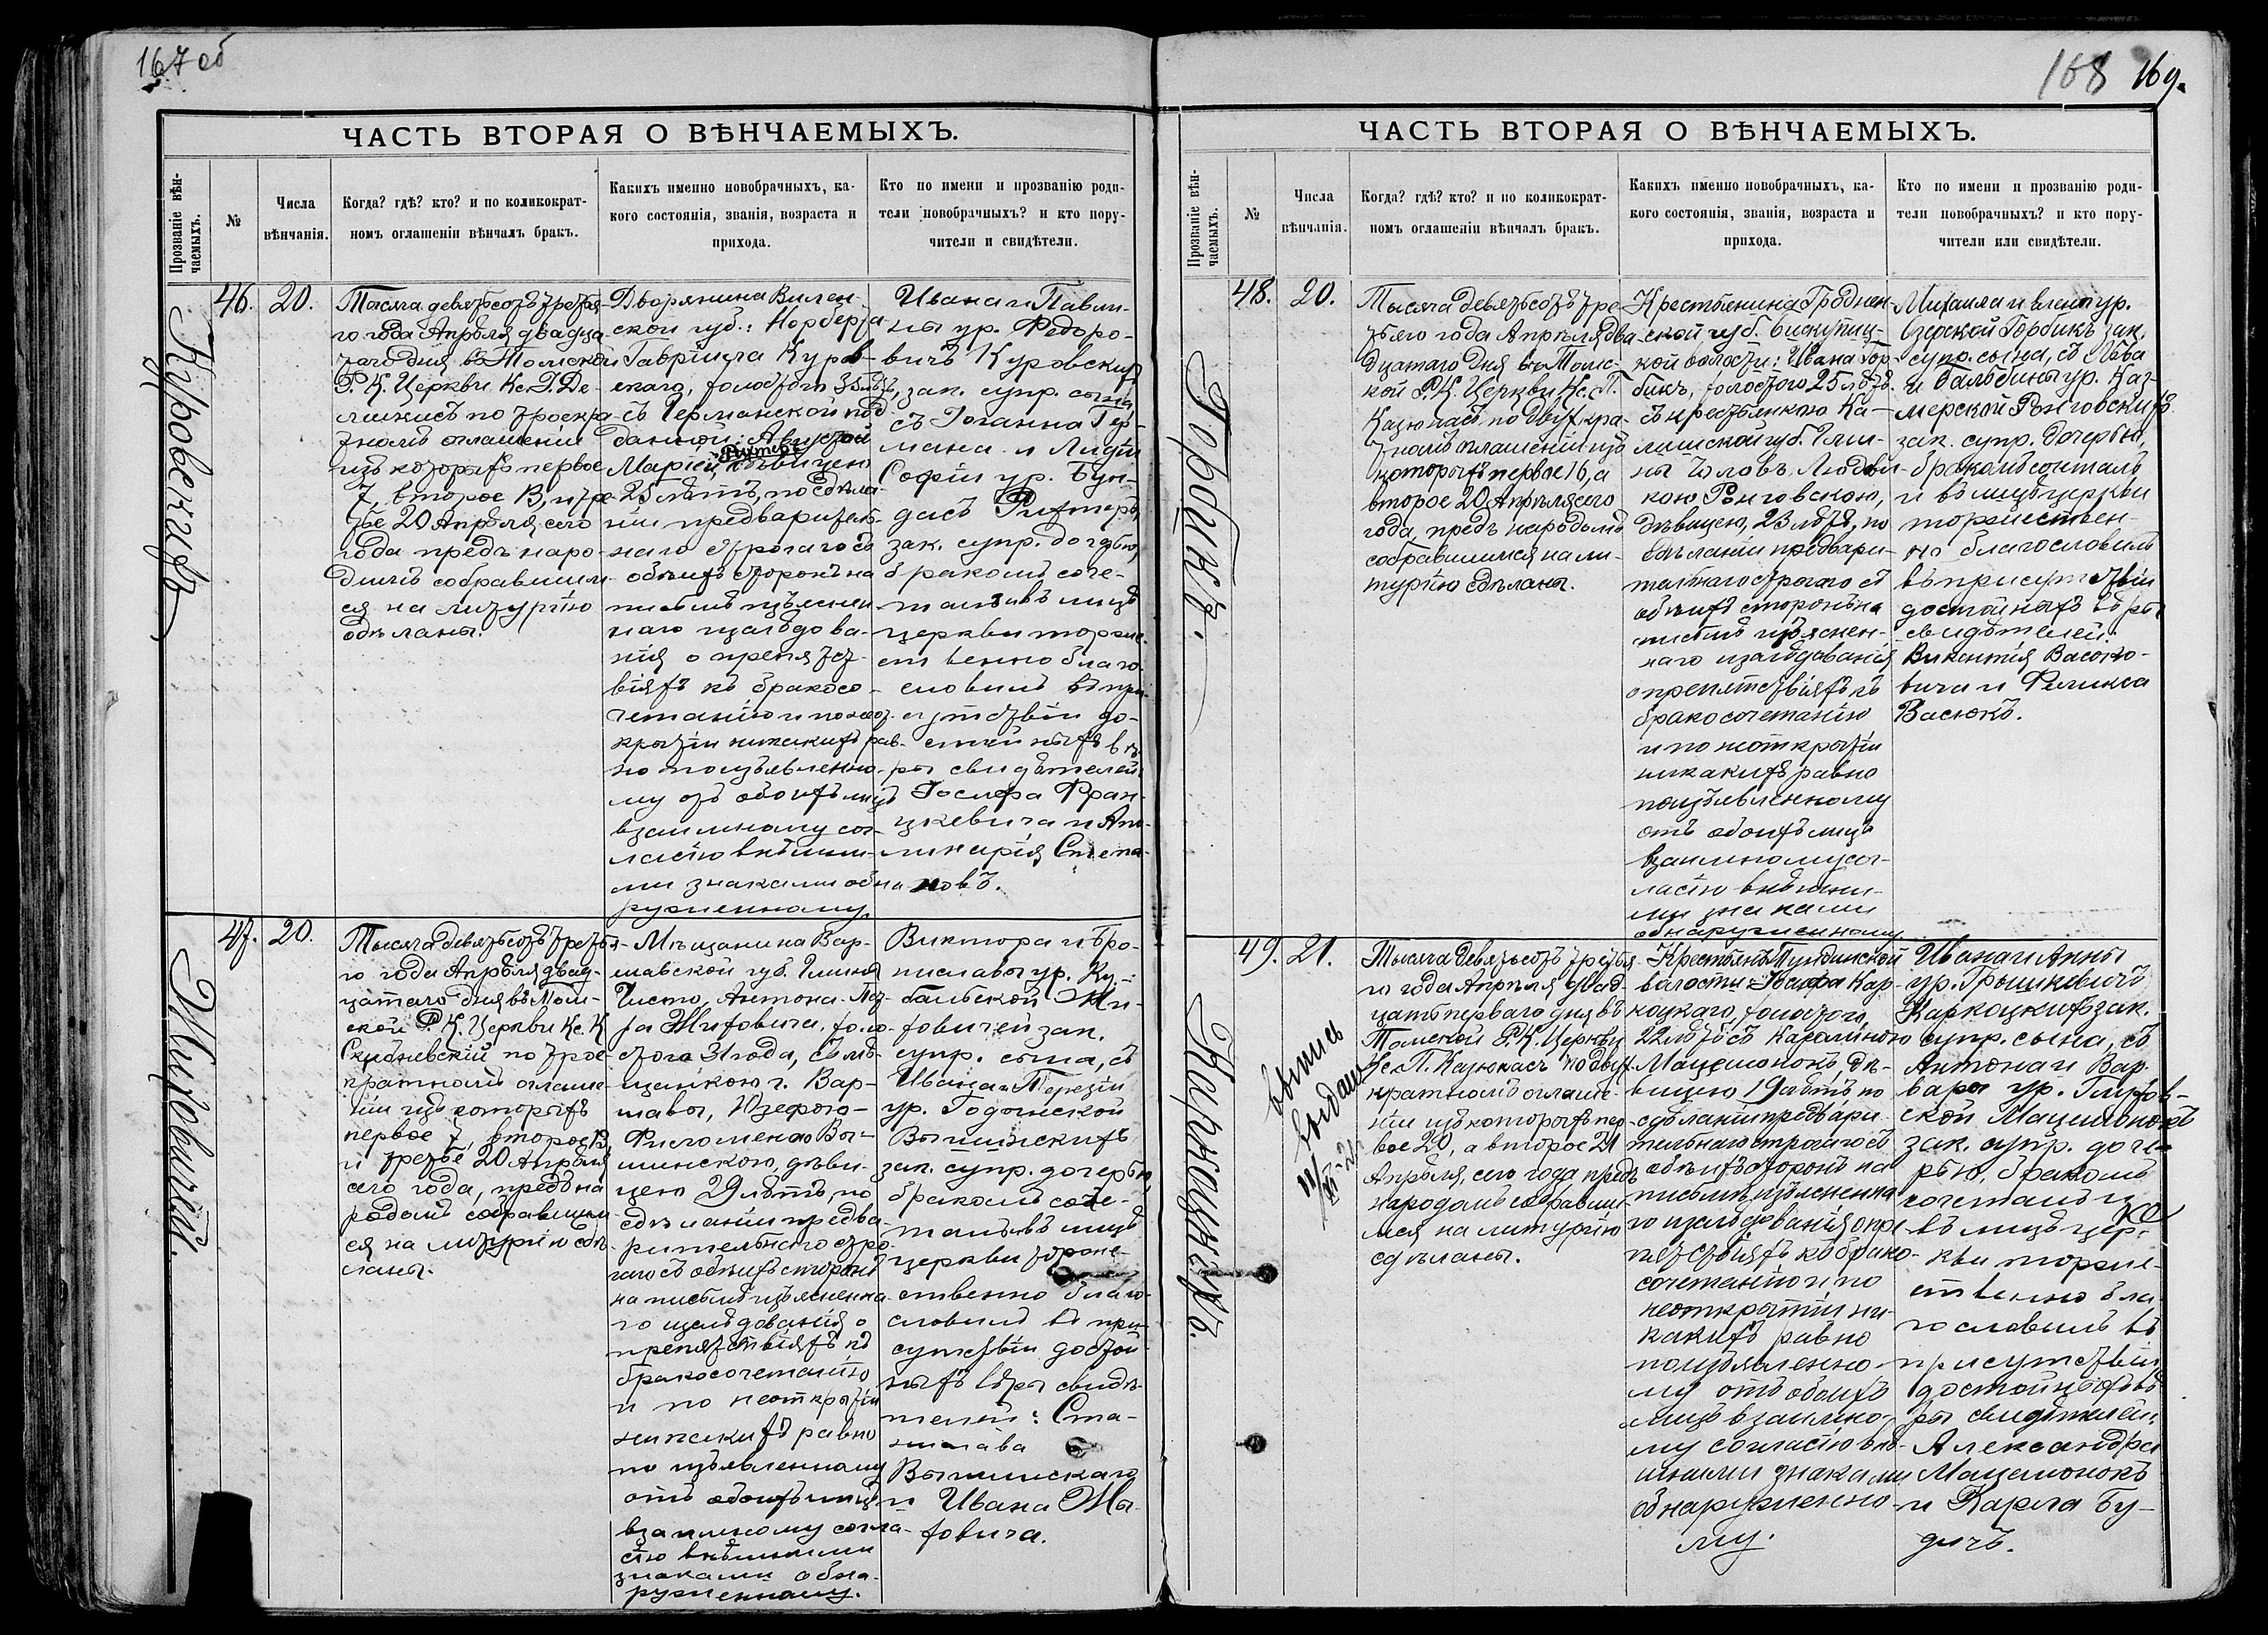 167 об
ЧАСТЬ ВТОРАЯ О ВѢНЧАЕМЫХЪ.
Прозваніе вѣнчаемыхъ.
№
Числа вѣнчанія.
Когда? гдѣ? кто? и по коликократ-
номъ оглашеніи вѣнчалъ бракъ.
Какихъ именно новобрачныхъ, ка-
кого состоянія, званія, возраста и
прихода.
Кто по имени и прозванію роди-
тели новобрачныхъ? и кто пору-
чители и свидѣтели.
Куровскихъ
46.
20.
Тысяча девятьсотъ третья-
го года Апрѣля двадца
таго дня въ Томской
Р. К. Церкви Кс. I. Де-
микисъ по троекра-
тномъ оглашеніи
изъ которыхъ первое
7, второе 13, и тре-
тье 20 Апрѣля сего
года предъ наро-
домъ собравшим-
ся на литургію
сдѣланы.
Дворянина Вилен-
ской губ.: Норберта
Гавріила Куров-
скаго, холостого 35 лѣтъ,
съ Германской под-
данной: Августой
Маріей Рихтеръ, дѣвицею
25 лѣтъ, по сдѣла-
ніи предваритель-
наго строгаго съ
обѣихъ сторонъ на
письмѣ изъяснен-
наго изслѣдова-
нія о препятст-
віяхъ къ бракосо-
четанію и по неот-
крытіи никакихъ рав-
но по изъявленно-
му отъ обоихъ лицъ
взаимному сог-
ласію внѣшни-
ми знаками обна-
руженному,
Ивана и Павли-
ны ур. Федоро-
вичъ Куровскихъ
зак. супр. сына,
съ Іоанна Гер-
мана и Лидіи
Софіи ур. Бун-
дасъ Рихтеръ,
зак. супр. дочерью,
бракомъ соче-
талъ и въ лицѣ
церкви торже-
ственно благо-
словилъ въ при-
сутствіи до-
стойныхъ вѣ-
ры свидѣтелей:
Іосифа Фран-
цкевича и Апо-
линарія Степа-
новъ.
Жиховичей.
47.
20.
Тысяча девятьсотъ третья-
го года Апрѣля двад-
цатаго дня въ Том-
ской Р. К. Церкви Кс. К
Скибневскій по трое-
кратномъ оглаше-
ніи изъ которыхъ
первое 7, второе 13
и третье 20 Апрѣля
сего года, предъ на-
родомъ собравшим-
ся на литургію сдѣ-
ланы.
Мѣщанина Вар-
шавской губ. Гмины
Чисто, Антона-Пет-
ра Жиховича, холо-
стого 31 года, съ мѣ-
щанкою г. Вар-
шавы, Юзефою-
Филоменою Вы-
шинскою, дѣви-
цею 29 лѣтъ, по
сдѣланіи предва-
рительнаго стро-
гаго съ обѣихъ сторонъ
на письмѣ изъясненна-
го изслѣдованія о
препятствіяхъ къ
бракосочетанію
и по неоткрытіи
никакихъ равно
по изъявленному
отъ обоихъ лицъ
взаимному согла-
сію внѣшними
знаками обна-
руженному.
Виктора и Бро-
ниславы ур. Ку-
бальской Жи-
ховичей зак.
супр. сына, съ
Ивана и Терезіи
ур. Годочнской
Вышинскихъ
зак. супр. дочерью
бракомъ соче-
талъ въ лицѣ
церкви торже-
ственно благо-
словилъ въ при-
сутствіи достой-
ныхъ вѣры свидѣ-
телей: Ста-
нислава
Вышинскаго
и Ивана Жы-
ховича.
168 169.
ЧАСТЬ ВТОРАЯ О ВѢНЧАЕМЫХЪ.
Прозваніе вѣнчаемыхъ.
№
Числа вѣнчанія.
Когда? гдѣ? кто? и по коликократ-
номъ оглашеніи вѣнчалъ бракъ.
Какихъ именно новобрачныхъ, ка-
кого состоянія, званія, возраста и
прихода.
Кто по имени и прозванію роди-
тели новобрачныхъ? и кто пору-
чители или свидѣтели.
Горбикъ.
48.
20.
Тысяча девятьсотъ тре-
тьяго года Апрѣля два-
дцатаго дня въ Томс-
кой Р. К. Церкви Кс. П.
Казюнасъ по двухкра-
тномъ оглашеніи изъ
которыхъ первое 16, а
второе 20 Апрѣля сего
года, предъ народомъ
собравшимся на ли-
тургію сдѣланы.
Крестьянина Гроднен-
ской губ. Бискупиц-
кой волости: Ивана Гор-
бикъ, холостого 25 лѣтъ.
съ крестьянкою Ка-
лишской губ. Гми-
ны Чоловъ. Людви-
кою Рэнговскою,
дѣвицею, 23 лѣтъ, по
сдѣланіи предвари-
тельнаго строгаго съ
обѣихъ сторонъ на
письмѣ изъяснен-
наго изслѣдованія
о препятствіяхъ къ
бракосочетанію
и по неоткрытіи
никакихъ равно
по изъявленному
отъ обоихъ лицъ
взаимному сог-
ласію внѣшни-
ми знаками
обнаруженному
Михаила и Елены ур.
Горбикъ зак.
супр. сына, съ Льва
и Бальбины ур. Каз-
мерской Рэнговскихъ
зак. супр. дочерью,
бракомъ сочеталъ
и въ лицѣ церкви
торжествен-
но благословилъ
въ присутствіи
достойныхъ вѣры
свидѣтелей:
Викентія Васюко-
вича и Феликса
Васюкъ.
Каркоцкихъ.
выпись
выдана
49.
21.
Тысяча девятьсотъ третья-
го года Апрѣля двад-
цать перваго дня въ
Томской Р. К. Церкви
Кс. П. Казюнасъ по двух-
кратномъ оглаше-
ніи изъ которыхъ пер-
вое 20, а второе 21
Апрѣля, сего года предъ
народомъ собравши-
мся на литургію
сдѣланы.
Крестьянъ Пундинской
волости: Іосифа Кар-
коцкаго, холостого,
22 лѣтъ съ Каролиною
Мацелюнокъ, дѣ-
вицею 19 лѣтъ по
сдѣланіи предвари-
тельнаго строгаго съ
обѣихъ сторонъ на
письмѣ изъясненна
го изслѣдованія о пре-
пятствіяхъ къ брако-
сочетанію и по
неоткрытіи ни-
какихъ равно
по изъявленно-
му отъ обоихъ
лицъ взаимно-
му согласію внѣ-
шними знаками
обнаруженно-
му.
Ивана и Анны
ур. Грышкевичъ
Каркоцкихъ зак.
супр. сына, съ
Антона и Вар-
вары ур. Глухов-
ской Мацелюнокъ
зак. супр. доче-
рью, бракомъ
сочеталъ и
въ лицѣ цер-
кви торже-
ственно бла-
гословилъ въ
присутствіи
достойныхъ вѣ-
ры свидѣтелей:
Александра
Мацелюнокъ
и Карла Бу-
дичъ.